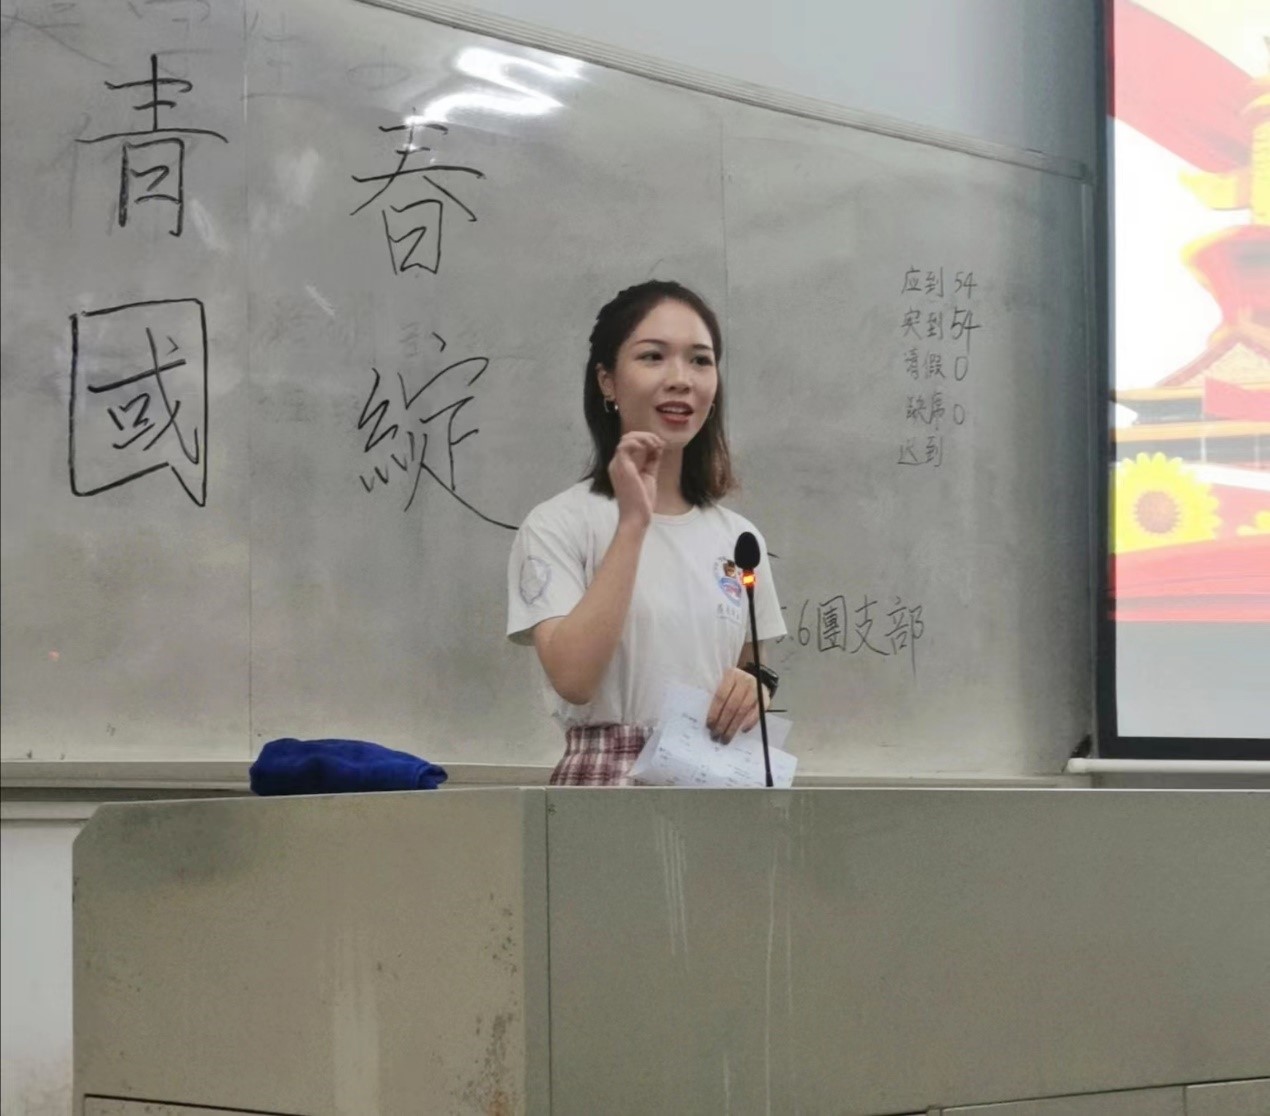 青 春
國 綻
应到 54
实到 54
请假 0
缺席 0
迟到
.6團支部